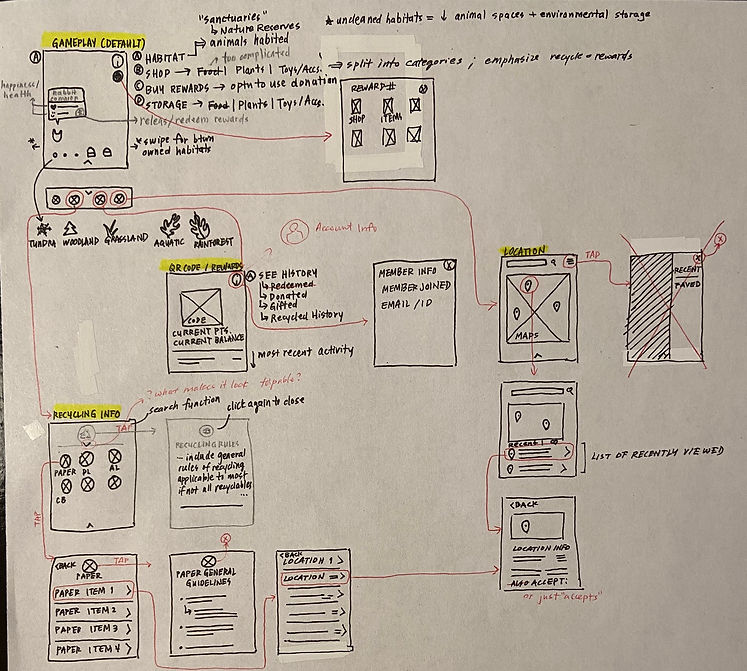 "Sanctuaries"
↳ Nature Reserves
* uncleaned habitats = ↓ animal spaces + environmental storage
GAMEPLAY (DEFAULT)
A
A HABITAT → animals habited
↳ too complicated
B SHOP → Food | Plants | Toys/Acc. ⇒ split into categories ; emphasize recycle = rewards
C BUY REWARDS → optn to use donation
D STORAGE → Food | Plants | Toys/Acc.
happiness/
health
Rabbit
→ release/redeem rewards
* swipe for btwn
owned habitats
REWARD#
SHOP ITEMS
TUNDRA WOODLAND GRASSLAND AQUATIC RAINFOREST
? Account Info
QR CODE / REWARDS
A SEE HISTORY
↳ Redeemed
↳ Donated
↳ Gifted
↳ Recycled History
CODE
CURRENT PTS.
CURRENT BALANCE
↓ most recent activity
MEMBER INFO
MEMBER JOINED
EMAIL / ID
LOCATION
TAP
MAPS
RECENT
X
RECENT
LIST OF RECENTLY VIEWED
? what makes it look
search function
click again to close
RECYCLING INFO
TAP
PAPER PL AL
CB
RECYCLING RULES
- include general
rules of recycling
applicable to most
if not all recyclables
...
TAP
<BACK
PAPER
TAP
PAPER ITEM 1 >
PAPER ITEM 2 >
PAPER ITEM 3 >
PAPER ITEM 4 >
PAPER GENERAL
GUIDELINES
X
<BACK
LOCATION 1 >
LOCATION >
<BACK
LOCATION INFO
ALSO ACCEPT:
or just "accepts"